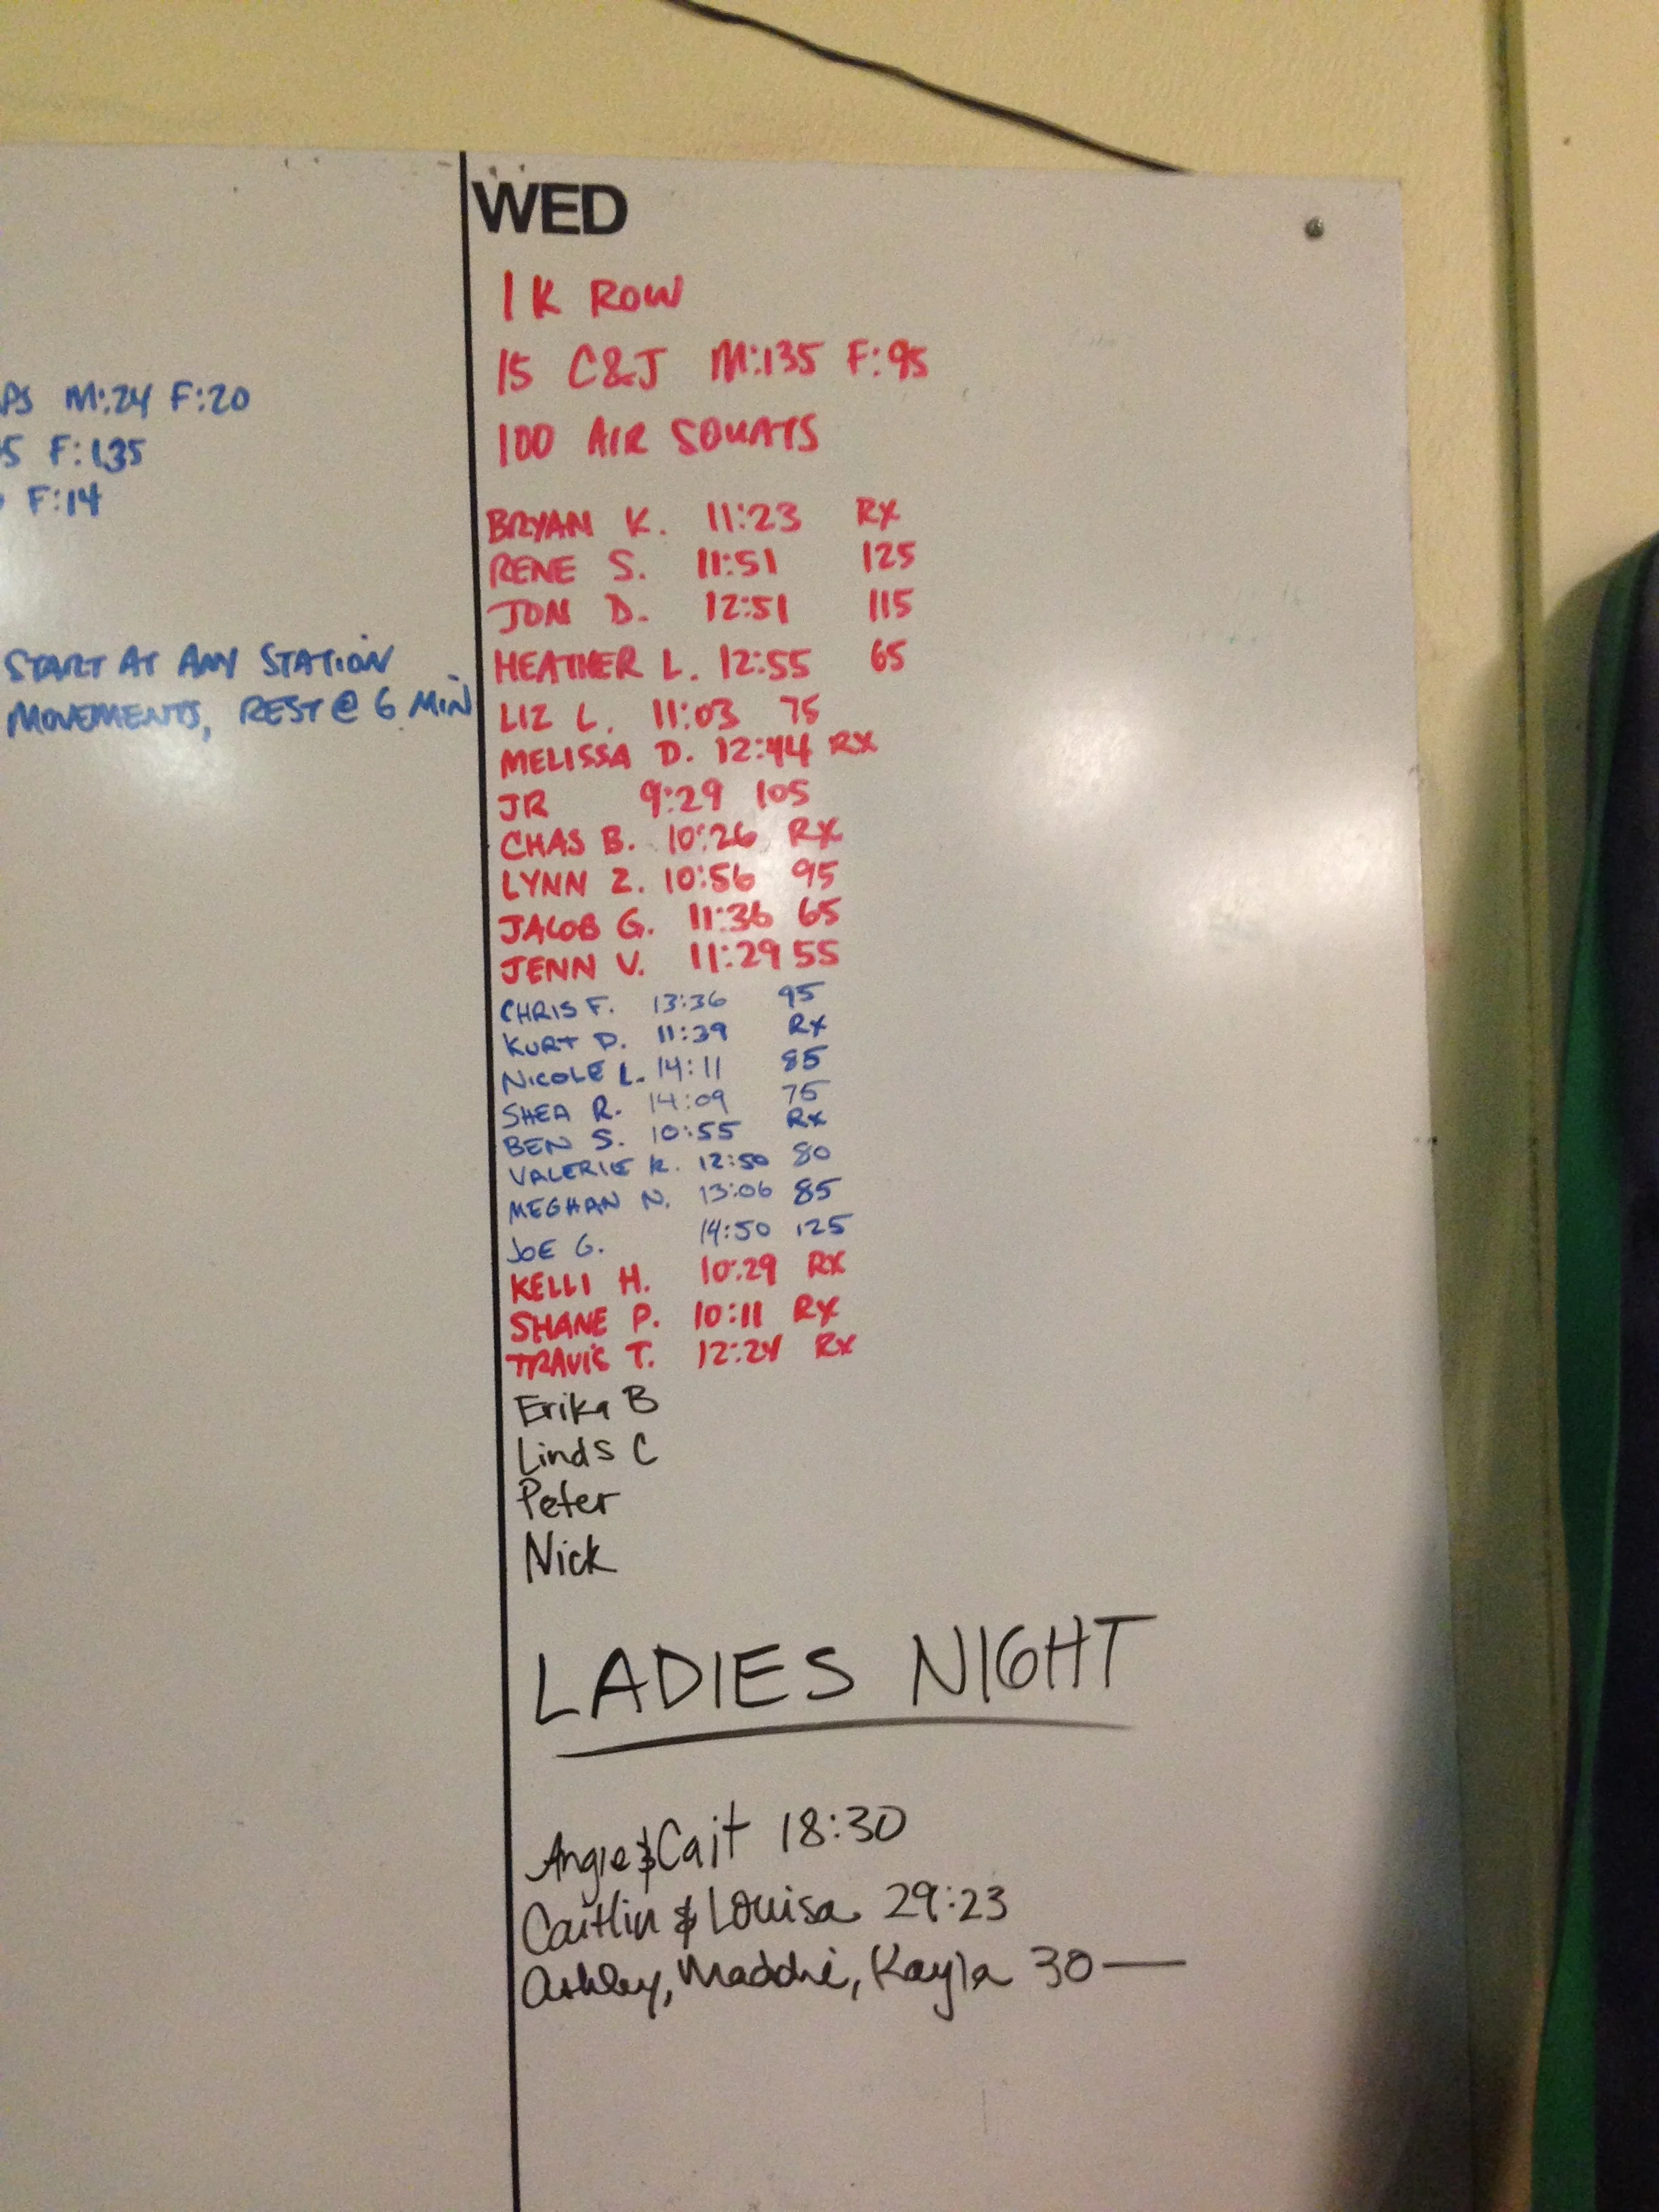 M:24 F:20
F:135
F:14
START AT ANY STATION
MOVEMENTS, REST @ 6 MIN
WED
1K ROW
15 C&J M:135 F:95
100 AIR SQUATS
BRYAN K. 11:23 RX
RENE S. 11:51 125
JON D. 12:51 115
HEATHER L. 12:55 65
LIZ L. 11:03 75
MELISSA D. 12:44 RX
JR 9:29 105
CHAS B. 10:26 RX
LYNN Z. 10:56 95
JACOB G. 11:36 65
JENN V. 11:29 55
CHRIS F. 13:36 95
KURT D. 11:39 Rx
NICOLE L. 14:11 85
SHEA R. 14:09 75
BEN S. 10:55 Rx
VALERIE K. 12:50 80
MEGHAN N. 13:06 85
JOE G. 14:50 125
KELLI H. 10:29 RX
SHANE P. 10:11 RX
TRAVIS T. 12:24 RX
Erika B
Linds C
Peter
Nick
LADIES NIGHT
Angie & Cait 18:30
Caitlin & Louisa 29:23
Ashley, Maddie, Kayla 30 —